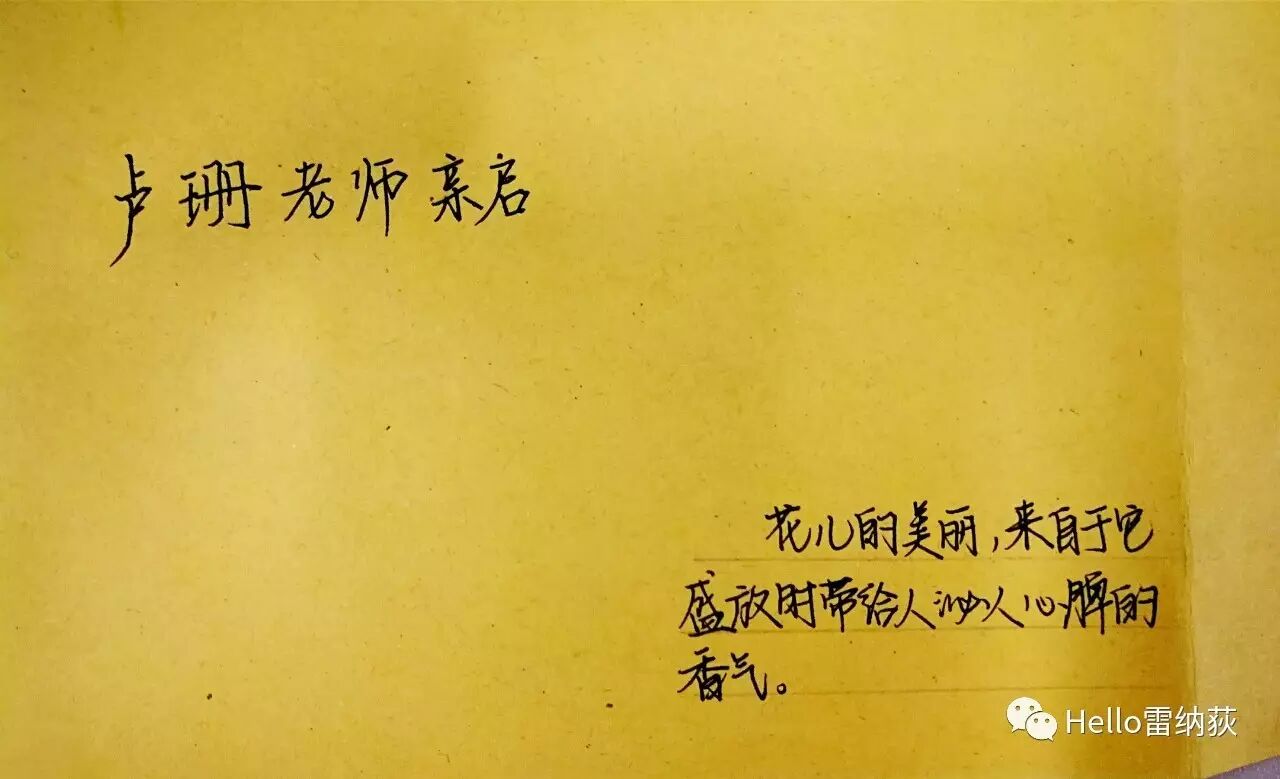 卢珊老师亲启
花儿的美丽,来自于它
盛放时带给人沁人心脾的
香气。
Hello雷纳荻